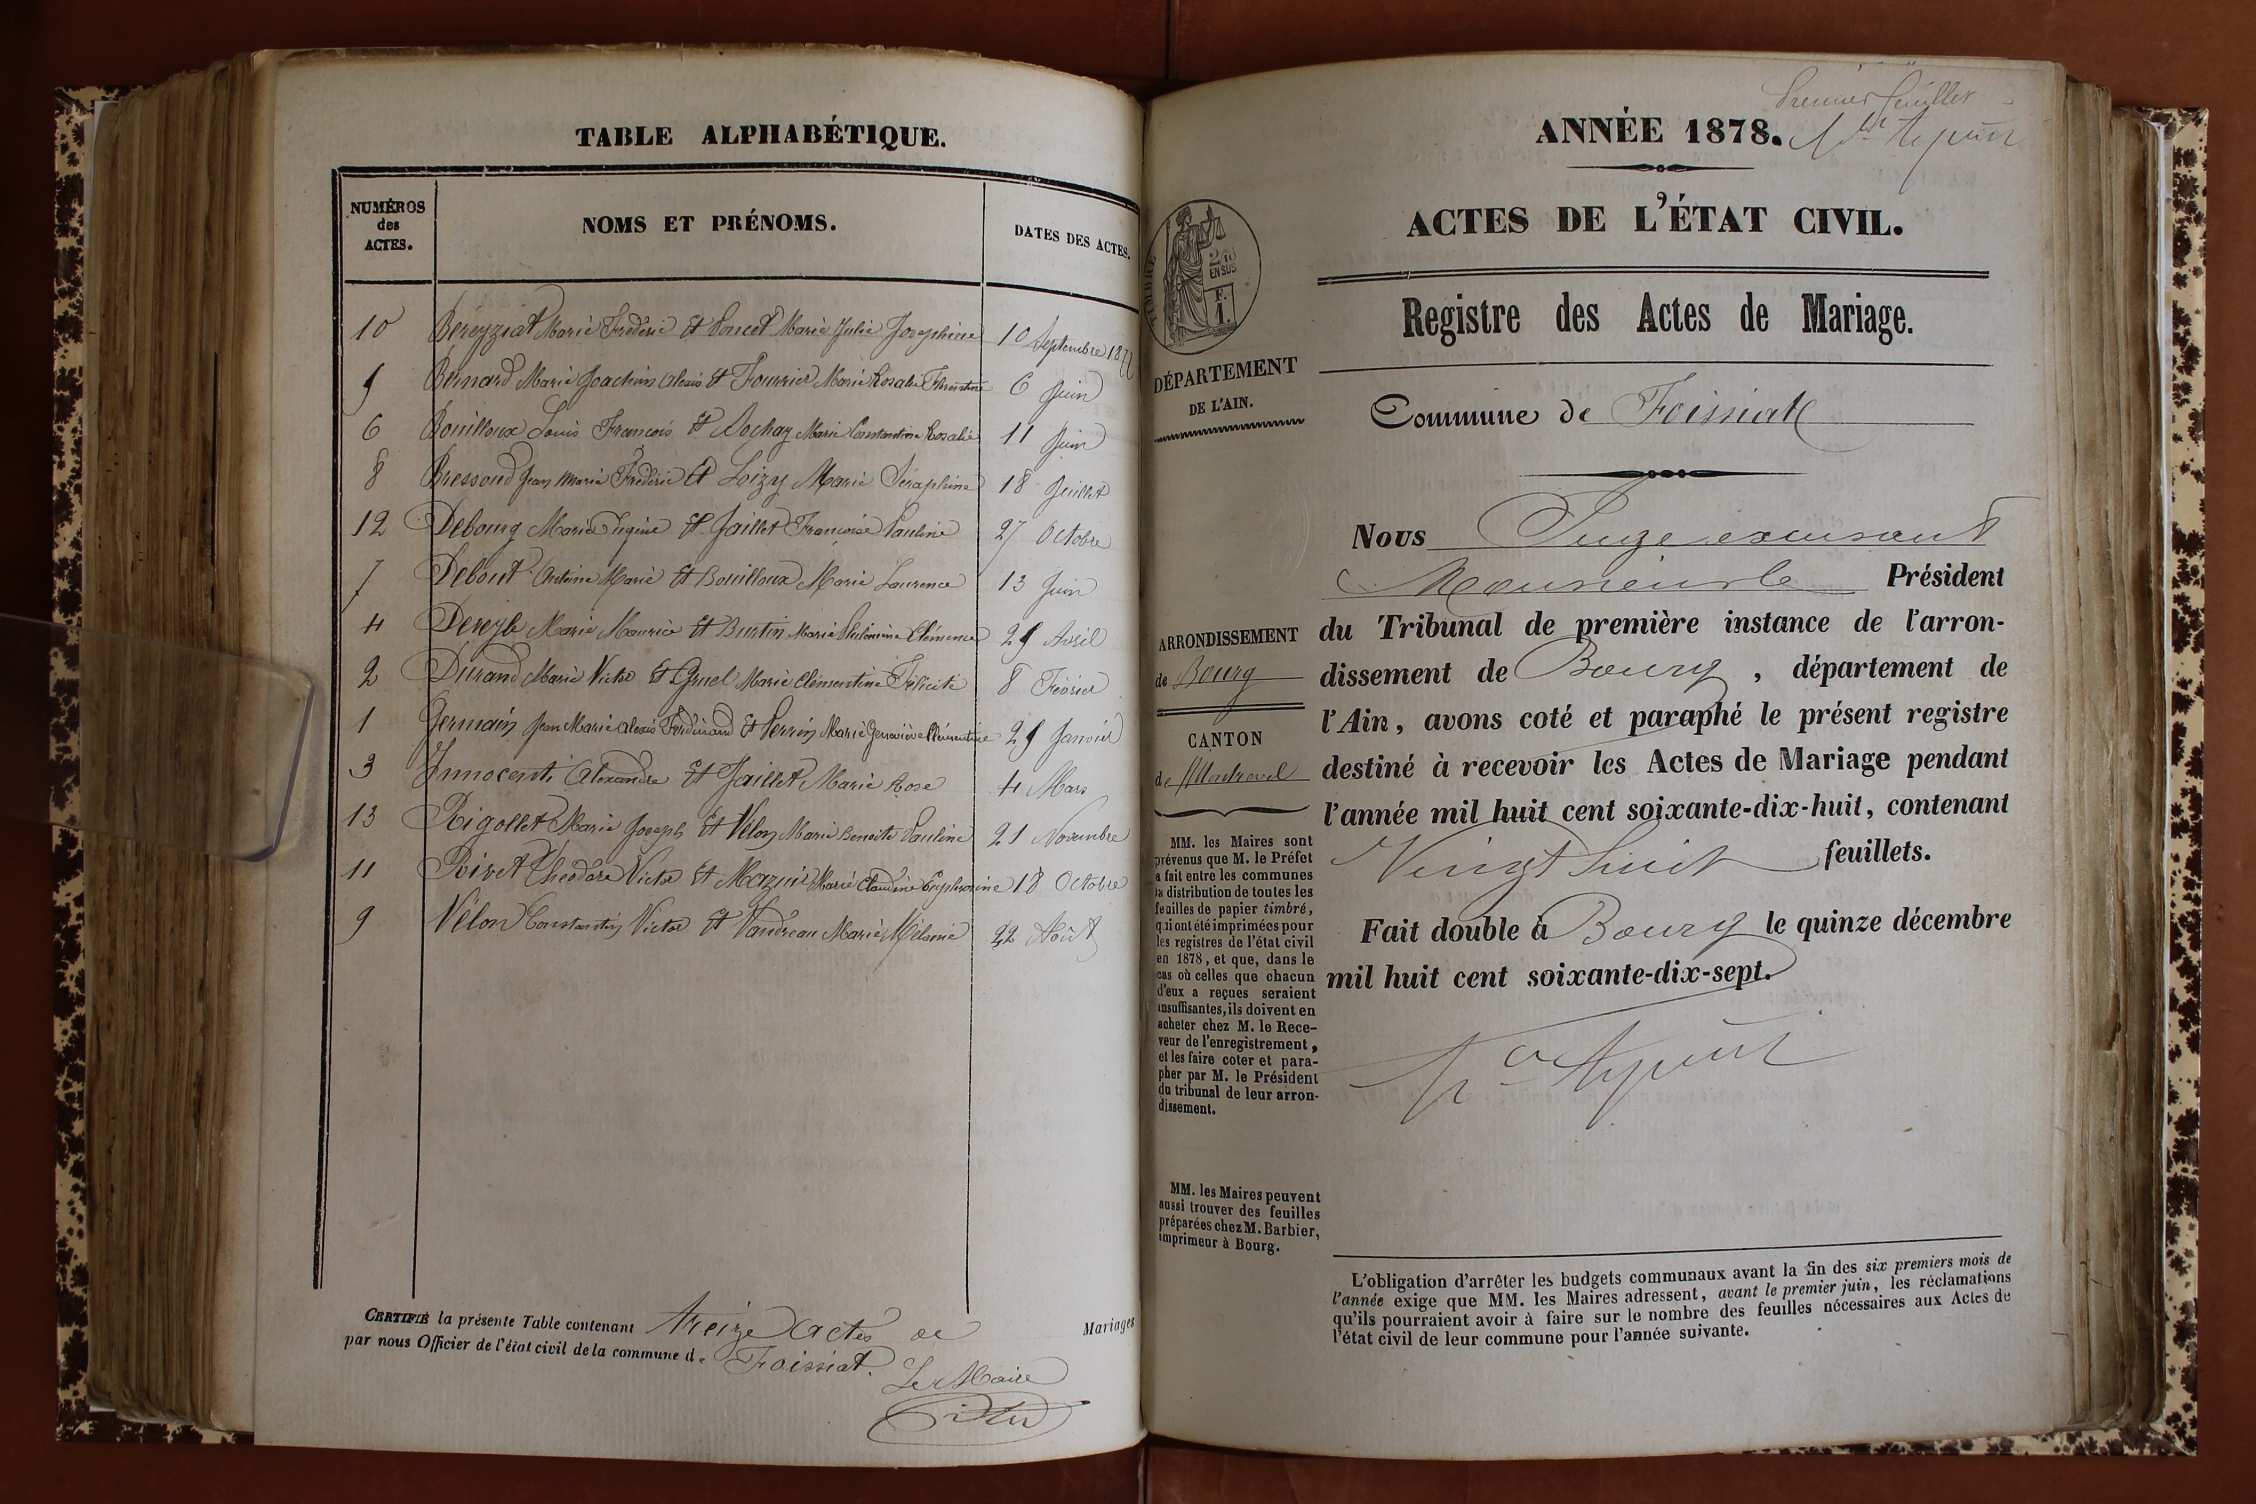 TABLE ALPHABÉTIQUE.
NUMÉROS
des
ACTES.
NOMS ET PRÉNOMS.
DATES DES ACTES.
10 Béréyziat Marie Fréderic Et Poncet Marie Julie Joséphine 10 Septembre 1877
5 Bernard Marie Joachim Alexis Et Fourrier Marie Rosalie Florentine 6 Juin
6 Bouilloux Louis François Et Dochaz Marie Constantine Rosalie 11 Juin
8 Bressoud Jean Marie Fréderic Et Loizy Marie Séraphine 18 Juillet
12 Debourg Marie Eugène Et Jaillet Françoise Pauline 27 Octobre
7 Debout Antoine Marie Et Bouilloux Marie Laurence 13 Juin
4 Dereyle Marie Maurice Et Burtin Marie Philomène Clémence 25 Avril
2 Durand Marie Victor Et Gruel Marie Clémentine Félicité 8 Février
1 Germain Jean Marie Alexis Ferdinand Et Perrin Marie Geneviève Clémentine 25 Janvier
3 Innocenti Alexandre Et Jaillet Marie Rose 4 Mars
13 Rigollet Marie Joseph Et Vélon Marie Benoite Pauline 21 Novembre
11 Rivet Théodore Victor Et Mazuir Marie Claudine Euphrosine 18 Octobre
9 Vélon Constantin Victor Et Vandreau Marie Mélanie 22 Août
CERTIFIÉ la présente Table contenant treize actes de Mariages
par nous Officier de l'état civil de la commune de Foissiat.
Le Maire
Premier feuillet
ANNÉE 1878.
ACTES DE L'ÉTAT CIVIL.
Registre des Actes de Mariage.
Commune de Foissiat
TIMBRE
2/10
EN SUS
F.
1.
DÉPARTEMENT
DE L'AIN.
ARRONDISSEMENT
de Bourg
CANTON
de Montrevel
MM. les Maires sont
prévenus que M. le Préfet
a fait entre les communes
la distribution de toutes les
feuilles de papier timbré,
qui ont été imprimées pour
les registres de l'état civil
en 1878, et que, dans le
cas où celles que chacun
d'eux a reçues seraient
insuffisantes, ils doivent en
acheter chez M. le Rece-
veur de l'enregistrement,
et les faire coter et para-
pher par M. le Président
du tribunal de leur arron-
dissement.
MM. les Maires peuvent
aussi trouver des feuilles
préparées chez M. Barbier,
imprimeur à Bourg.
Nous Juge excusant
Monsieur le Président
du Tribunal de première instance de l'arron-
dissement de Bourg, département de
l'Ain, avons coté et paraphé le présent registre
destiné à recevoir les Actes de Mariage pendant
l'année mil huit cent soixante-dix-huit, contenant
Vingt huit feuillets.
Fait double à Bourg le quinze décembre
mil huit cent soixante-dix-sept.
L'obligation d'arrêter les budgets communaux avant la fin des six premiers mois de
l'année exige que MM. les Maires adressent, avant le premier juin, les réclamations
qu'ils pourraient avoir à faire sur le nombre des feuilles nécessaires aux Actes de
l'état civil de leur commune pour l'année suivante.